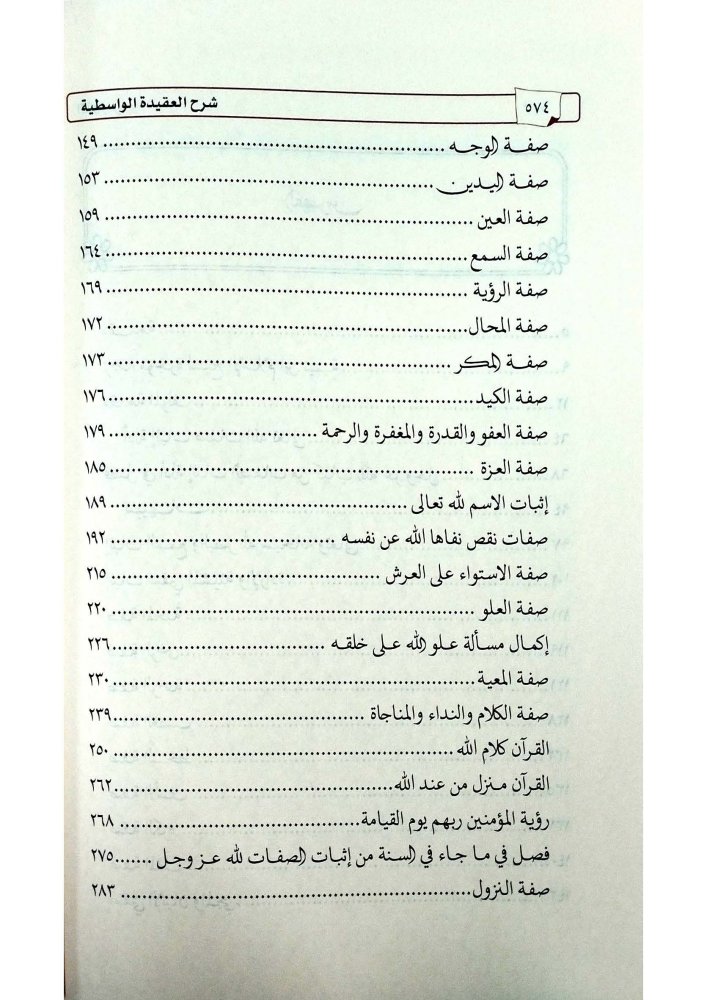 ٥٧٤ شرح العقيدة الواسطية
صفة الوجه ........ ١٤٩
صفة اليدين ........ ١٥٣
صفة العين ........ ١٥٩
صفة السمع ........ ١٦٤
صفة الرؤية ........ ١٦٩
صفة المحال ........ ١٧٢
صفة المكر ........ ١٧٣
صفة الكيد ........ ١٧٦
صفة العفو والقدرة والمغفرة والرحمة ........ ١٧٩
صفة العزة ........ ١٨٥
إثبات الاسم لله تعالى ........ ١٨٩
صفات نقص نفاها الله عن نفسه ........ ١٩٢
صفة الاستواء على العرش ........ ٢١٥
صفة العلو ........ ٢٢٠
إكمال مسألة علو الله على خلقه ........ ٢٢٦
صفة المعية ........ ٢٣٠
صفة الكلام والنداء والمناجاة ........ ٢٣٩
القرآن كلام الله ........ ٢٥٠
القرآن منزل من عند الله ........ ٢٦٢
رؤية المؤمنين ربهم يوم القيامة ........ ٢٦٨
فصل في ما جاء في السنة من إثبات الصفات لله عز وجل ....... ٢٧٥
صفة النزول ........ ٢٨٣